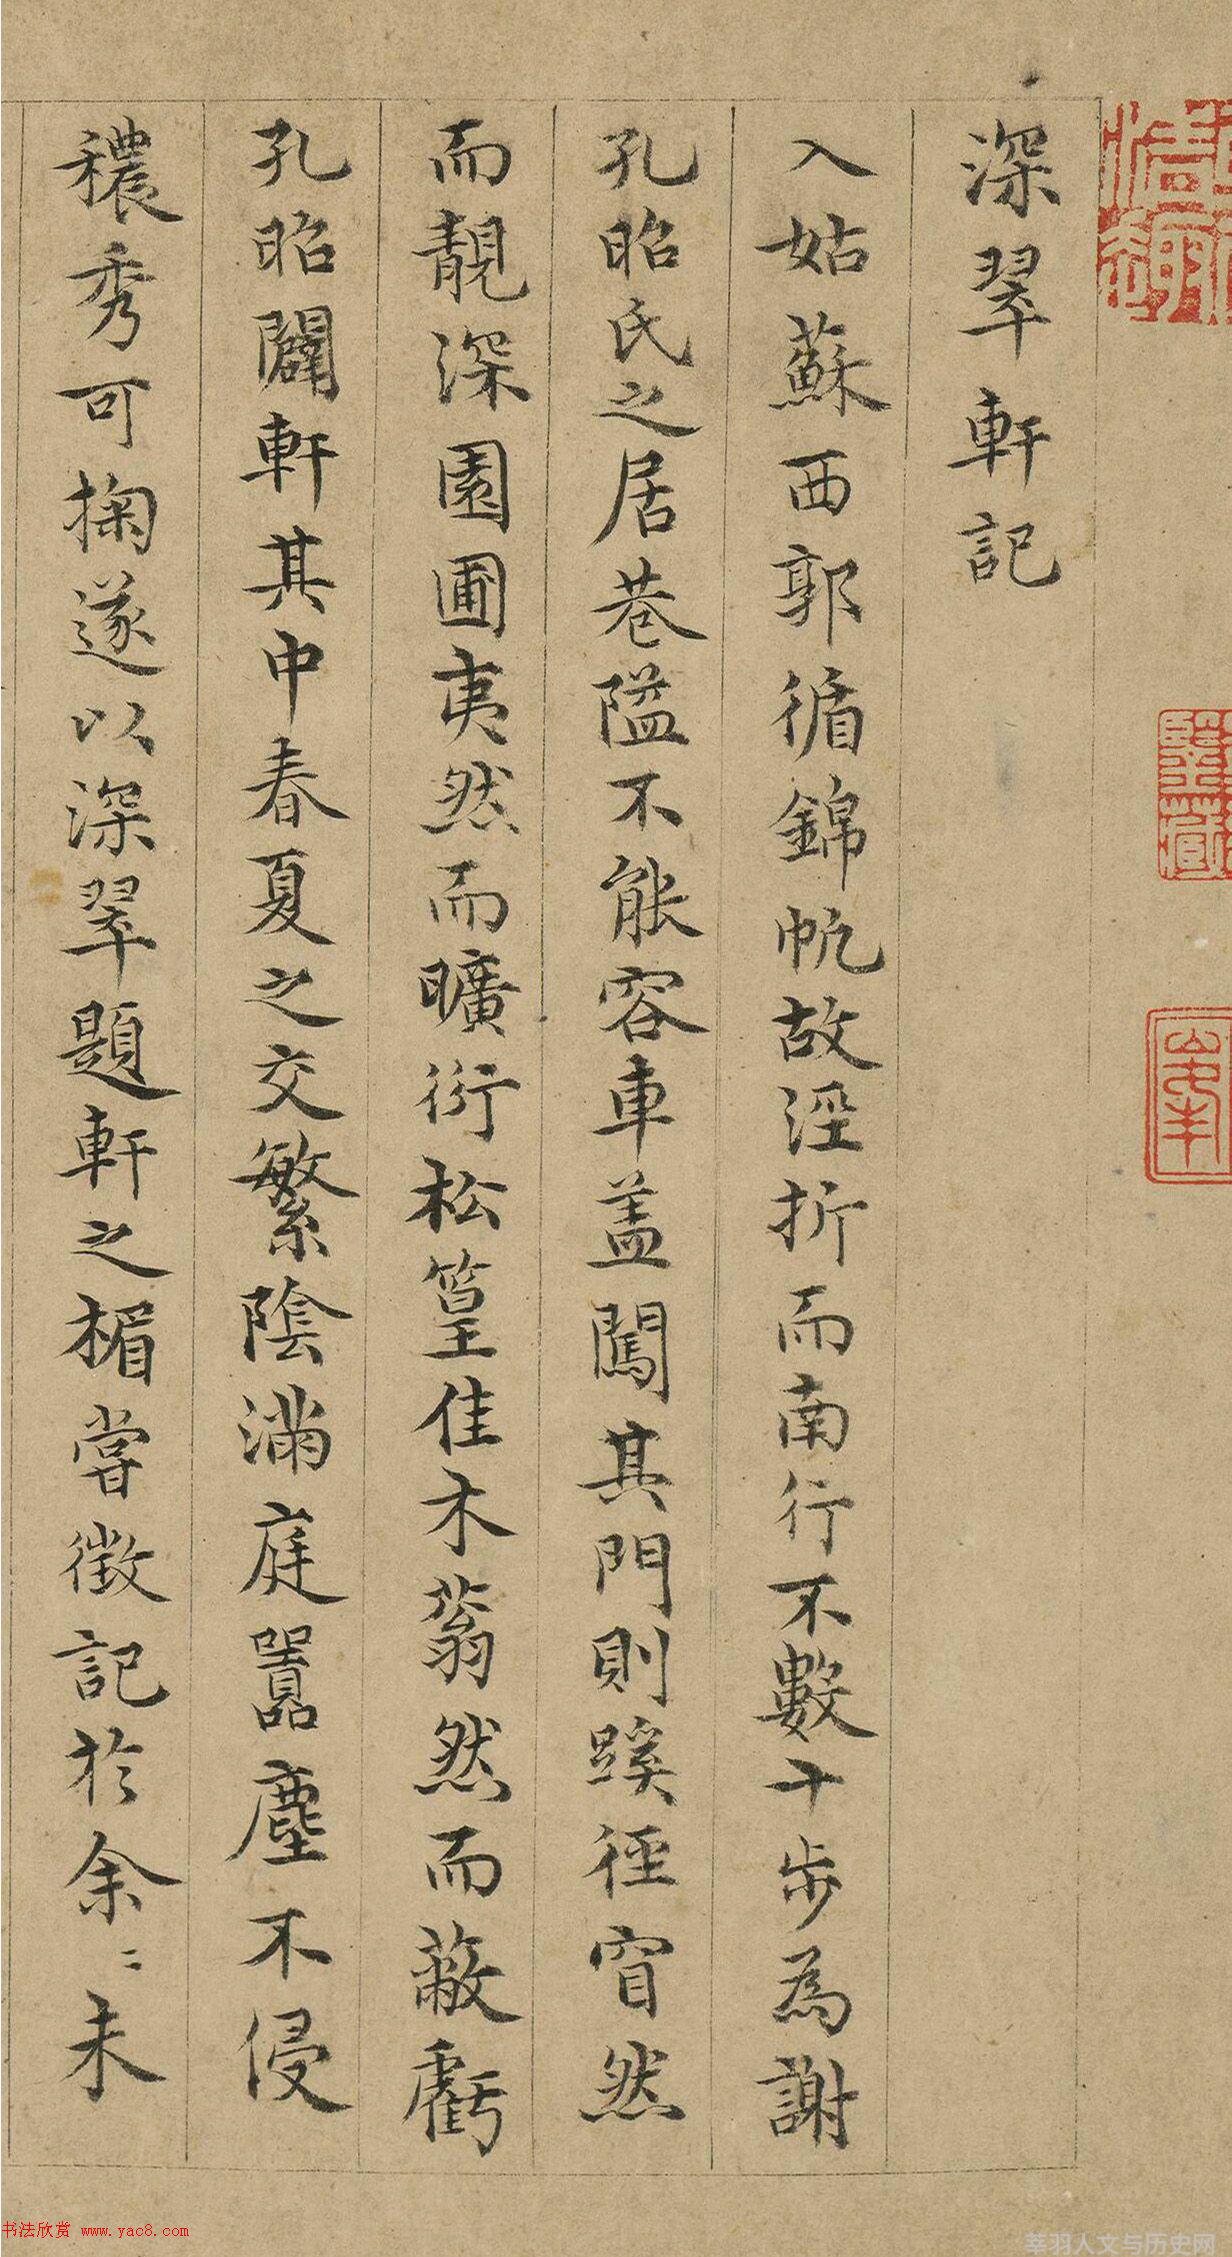 深翠軒記
入姑蘇西郭循錦帆故涇折而南行不數十步為謝
孔昭氏之居巷隘不能容車盖闖其門則蹊徑窅然
而靚深園圃夷然而曠衍松篁佳木蓊然而蔽虧
孔昭闢軒其中春夏之交繁陰滿庭囂塵不侵
穠秀可掬遂以深翠題軒之楣嘗徵記於余〻未
书法欣赏 www.yac8.com
莘羽人文与历史网